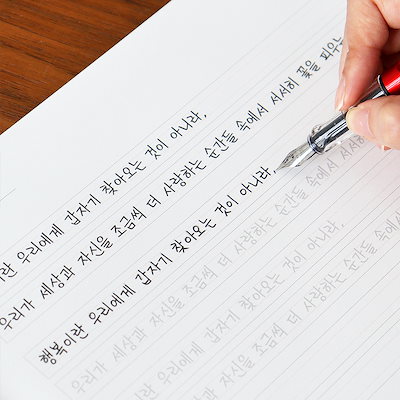 란 우리에게 갑자기 찾아오는 것이 아니라,
우리가 세상과 자신을 조금씩 더 사랑하는 순간들 속에서 서서히 꽃을 피우는
행복이란 우리에게 갑자기 찾아오는 것이 아니라,
우리가 세상과 자신을 조금씩 더 사랑하는 순간들 속에서 서서히
행복이란 우리에게 갑자기 찾아오는 것이 아니라,
우리가 세상과 자신을 조금씩 더 사랑하는 순간들 속에서